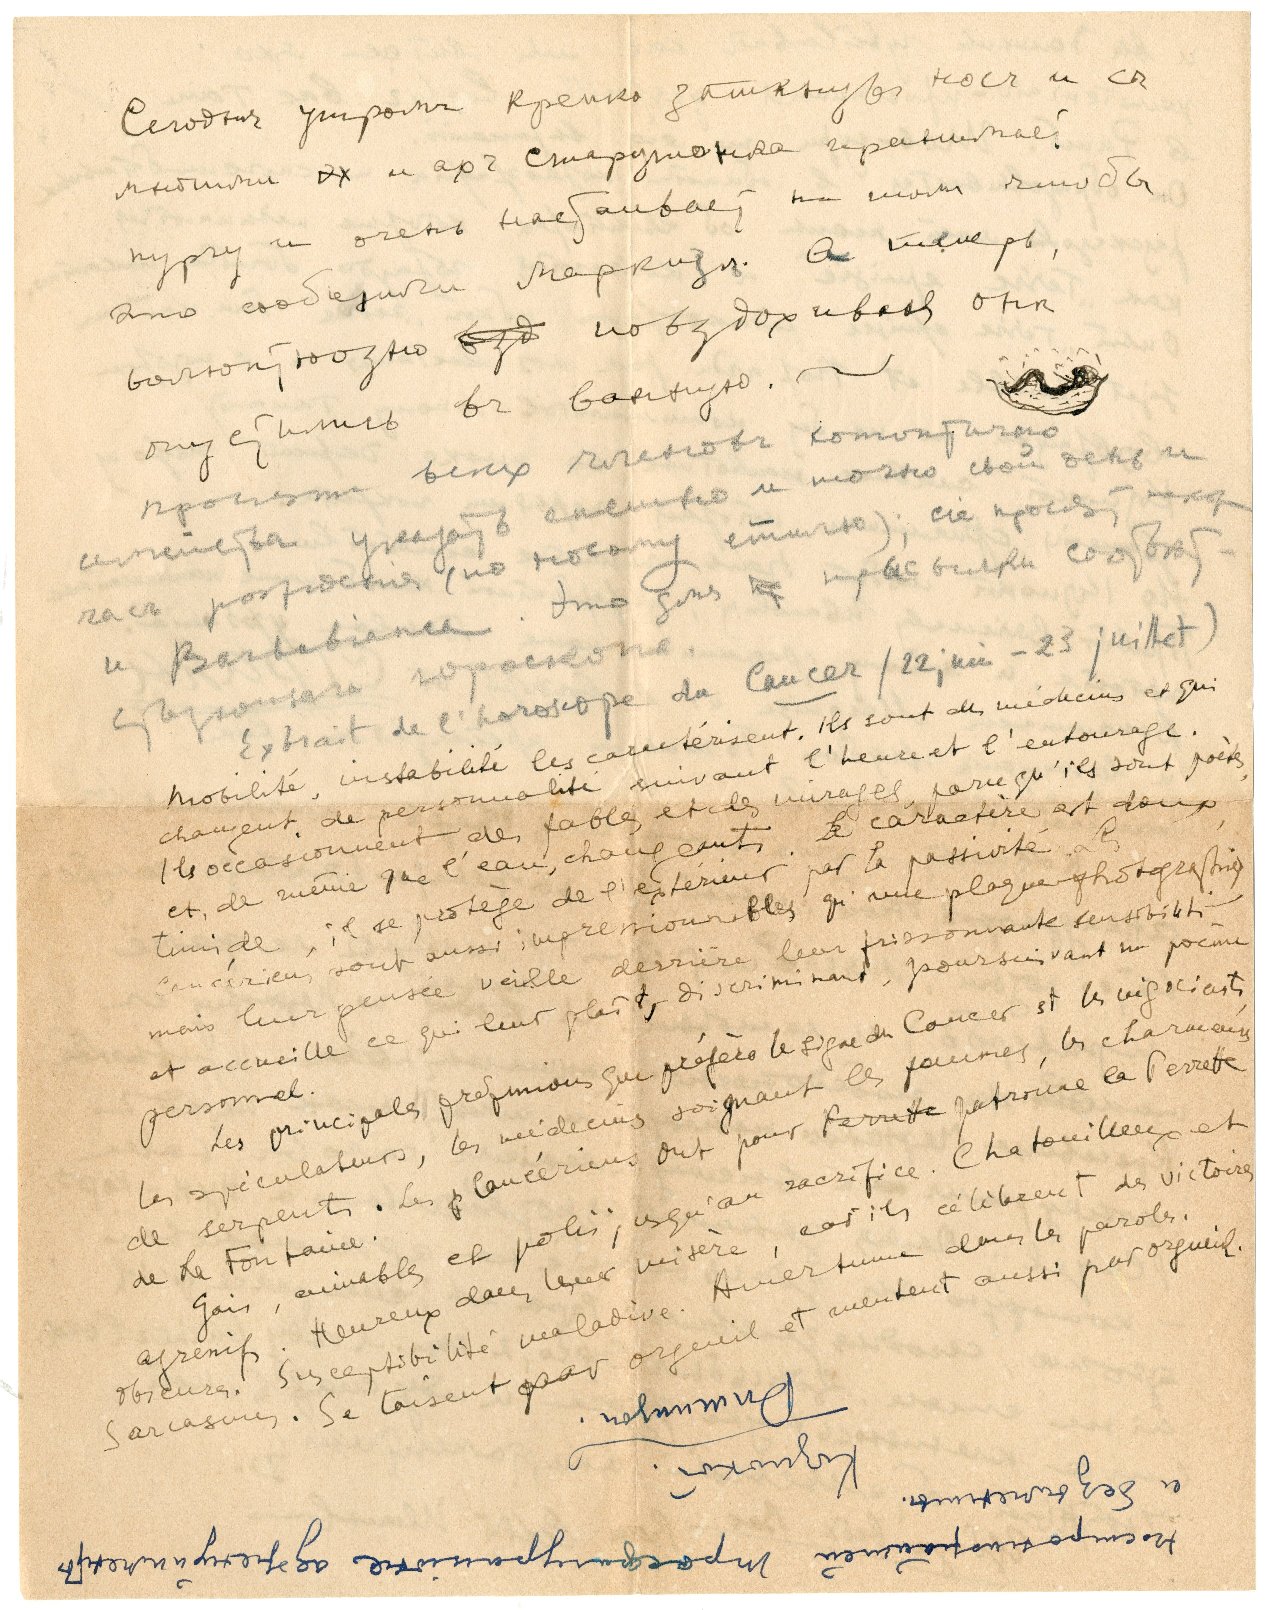 Сегодня утромъ крепко заткнувъ носъ и съ
многими их и ахъ старушонка принимает
пургу и очень настаивает на томъ чтобы
это сообщили Маркизу. А теперь,
волюптюозно взд повздохивая она
опустилась въ ванную.
просятъ всех членовъ
семейства указать спешно и точно свой день и
часъ рождения (по новому стилю); сiе просят
и Barbebianca. Это для
гороскопа.
Extrait de l'horoscope du Cancer (22 juin – 23 juillet)
Mobilité, instabilité les caractérisent. Ils sont des médecins et qui
changent de personnalité suivant l'heure et l'entourage.
Ils occasionnent des fables et des mirages, parce qu'ils sont poètes,
et, de même que l'eau, changeants. Le caractère est doux,
timide, il se protège de l'extérieur par la passivité. Les
cancériens sont aussi impressionnables qu'une plaque photographique
mais leur pensée veille derrière leur frissonnante sensibilité
et accueille ce qui leur plaît, discriminant, poursuivant un poème
personnel.
Les principales professions que préfère le signe du Cancer st les négociants,
les spéculateurs, les médecins soignant les femmes, les charmeurs
de serpents. Les cancériens ont pour Perrette patronne la Perrette
de La Fontaine.
Gais, aimables et polis jusqu'au sacrifice. Chatouilleux et
agressifs. Heureux dans leur misère, car ils célèbrent des victoires
obscures. Susceptibilité maladive. Amertume dans les paroles.
Sarcasmes. Se taisent par orgueil et mentent aussi par orgueil.